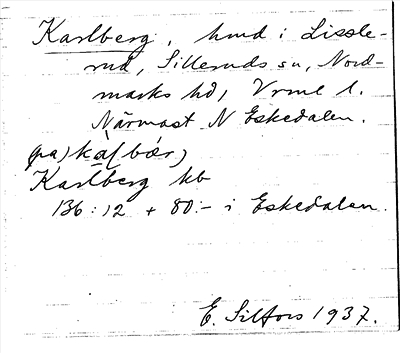 Karlberg, hmd i Lissle-
rud, Silleruds sn, Nord-
marks hd, Vrml l.
Närmast N Eskedalen.
(pa) ka(bær)
Karlberg kb
136:12 + 80:- i Eskedalen.
E. Silfors 1937.